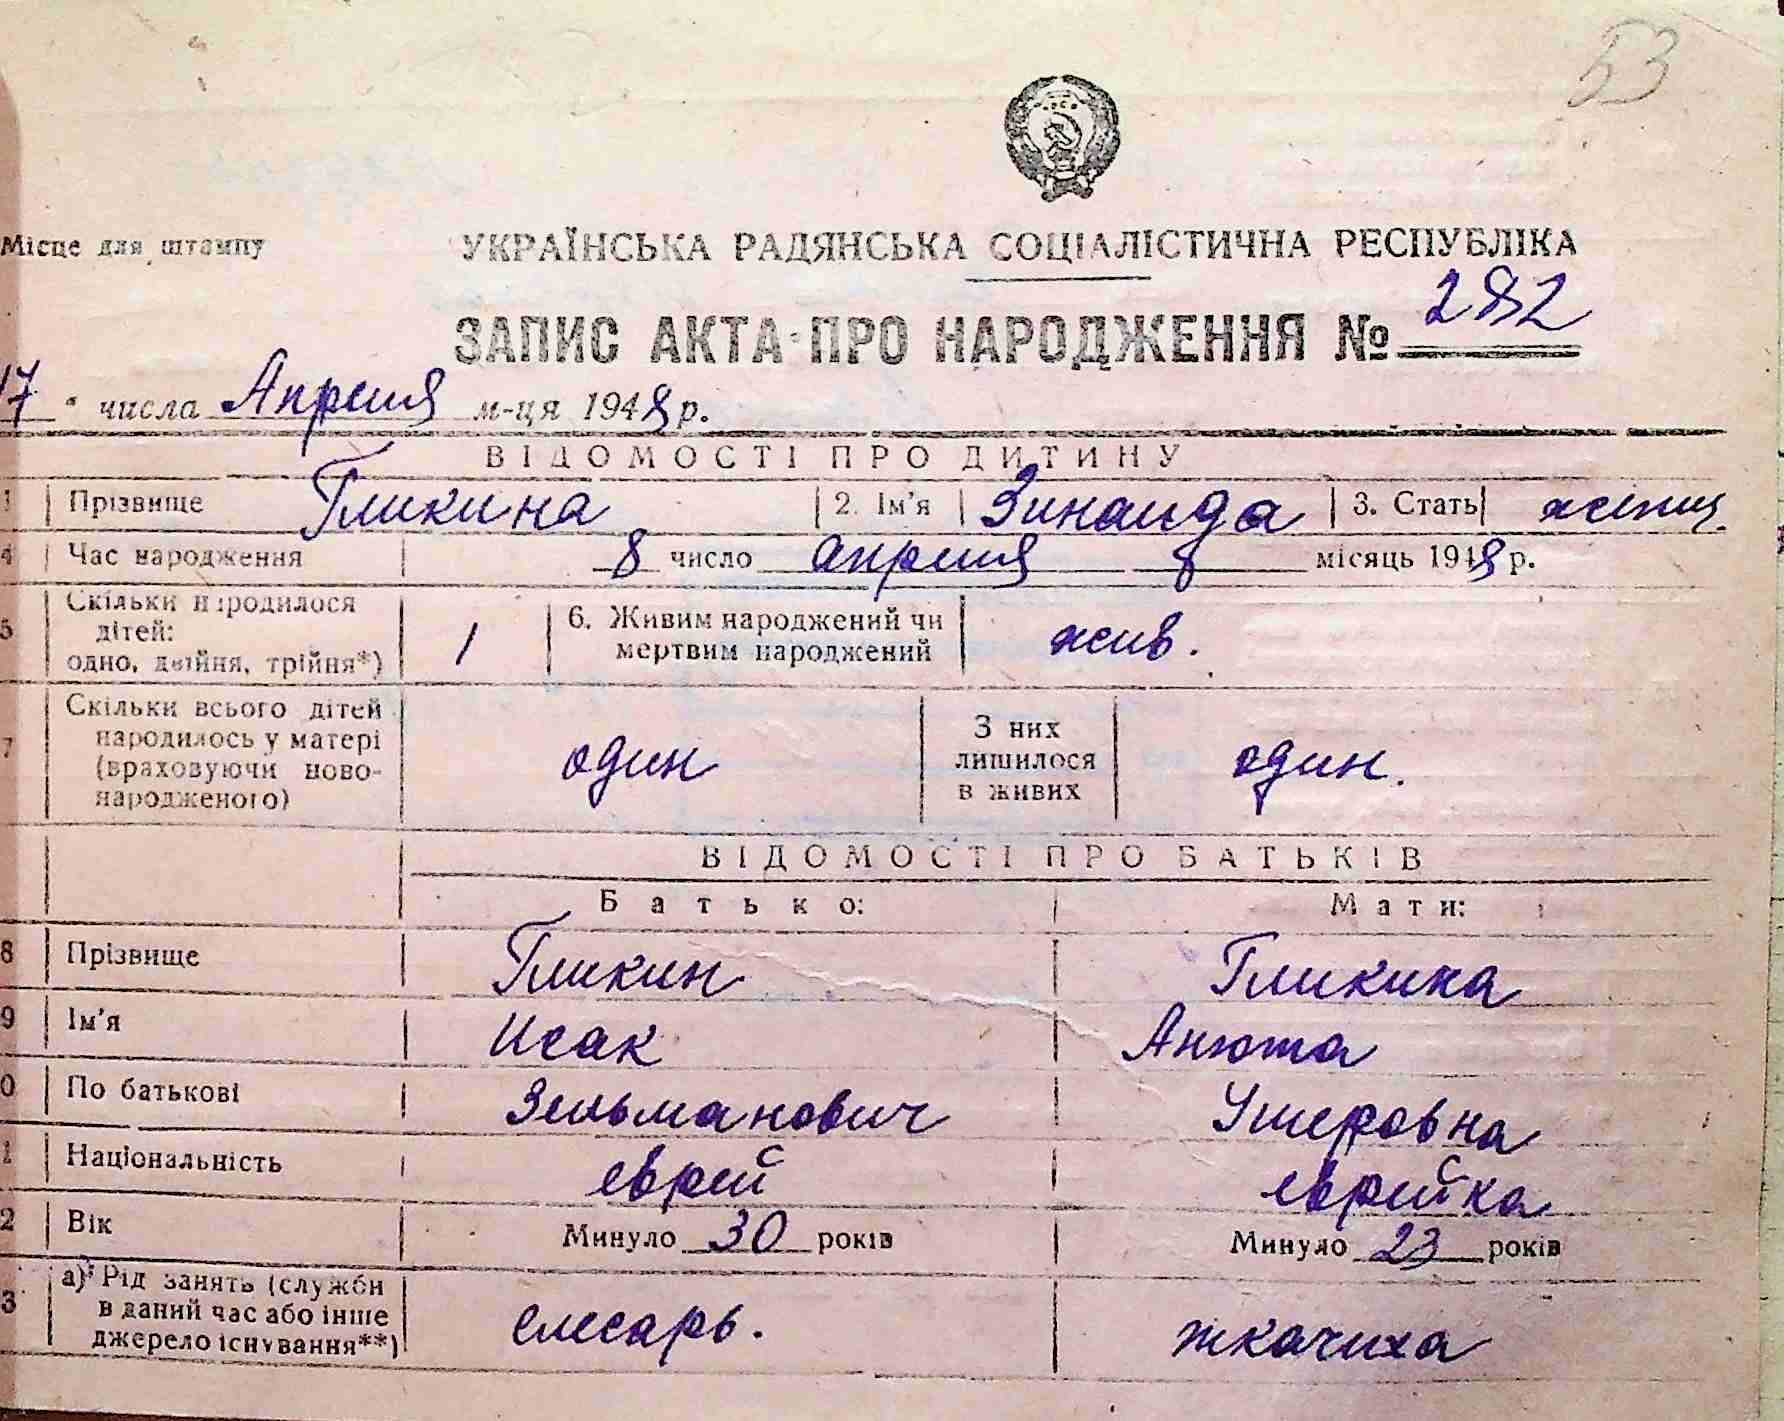 53
Місце для штампу
УКРАЇНСЬКА РАДЯНСЬКА СОЦІАЛІСТИЧНА РЕСПУБЛІКА
ЗАПИС АКТА ПРО НАРОДЖЕННЯ № 282
17 " числа Апреля м-ця 1948 р.
ВІДОМОСТІ ПРО ДИТИНУ
1 Прізвище Гликина 2. Ім'я Зинаида 3. Стать женщ.
4 Час народження 8 число апреля 8 місяць 1948 р.
5 Скільки народилося дітей: одно, двійня, трійня*) 1 6. Живим народжений чи мертвим народжений жив.
7 Скільки всього дітей народилось у матері (враховуючи новонародженого) один З них лишилося в живих один.
ВІДОМОСТІ ПРО БАТЬКІВ
Батько: Мати:
8 Прізвище Гликин Гликина
9 Ім'я Исак Анюта
0 По батькові Зельманович Ушеровна
1 Національність еврей еврейка
2 Вік Минуло 30 років Минуло 23 років
3 а) Рід занять (служби в даний час або інше джерело існування**) слесарь. ткачиха